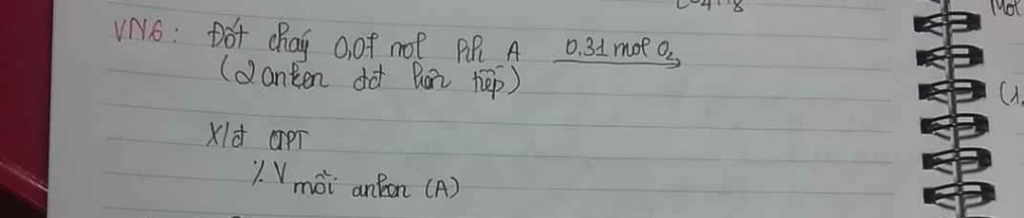 VN6: Đốt cháy 0,07 mol hh A 0.31 mol O2
(2 ankan đđ liên tiếp)
X/đ CTPT
% V mỗi ankan (A)